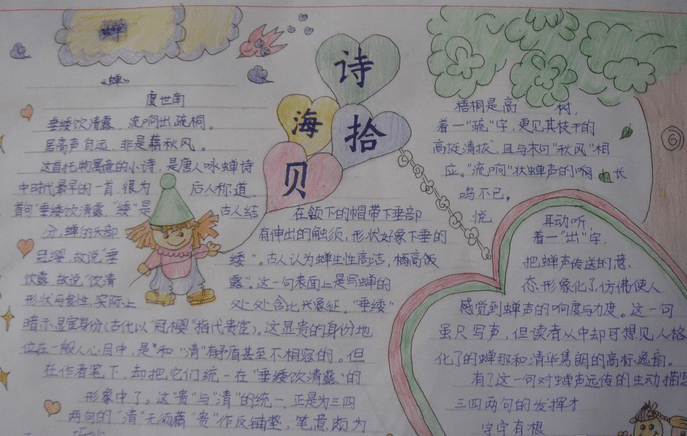 蝉
诗
海
拾
贝
《蝉》
虞世南
垂緌饮清露，流响出疏桐。
居高声自远，非是藉秋风。
这首托物寓意的小诗，是唐人咏蝉诗
中时代最早的一首，很为 后人称道。
首句"垂緌饮清露，"緌"是 古人结
在颔下的帽带下垂部
分，蝉的头部 有伸出的触须，形状好象下垂的
冠缨，故说"垂 緌"。古人认为蝉生性高洁，栖高饮
饮露，故说"饮清 露"。这一句表面上是写蝉的
形状与食性，实际上 处处含比兴象征。"垂緌"
暗示显宦身份(古代以"冠缨"指代贵宦)。这显贵的身份地
位在一般人心目中，是"和"清"有矛盾甚至不相容的。但
在作者笔下，却把它们统一在"垂緌饮清露"的
形象中了。这"贵"与"清"的统一，正是为三四
两句的"清"无须藉"贵"作反铺垫，笔意颇为
梧桐是高 树，
着一"疏"字，更见其枝干的
高挺清拔，且与末句"秋风"相
应。"流响"状蝉声的 长
鸣不已，
悦 耳动听，
着一"出"字，
把蝉声传送的意
态形象化了，仿佛使人
感觉到蝉声的响度与力度。这一句
虽只写声，但读者从中却可想见人格
化了的蝉那和清华隽朗的高标逸韵。
有了这一句对蝉声远传的生动描
三四两句的发挥才
字字有根